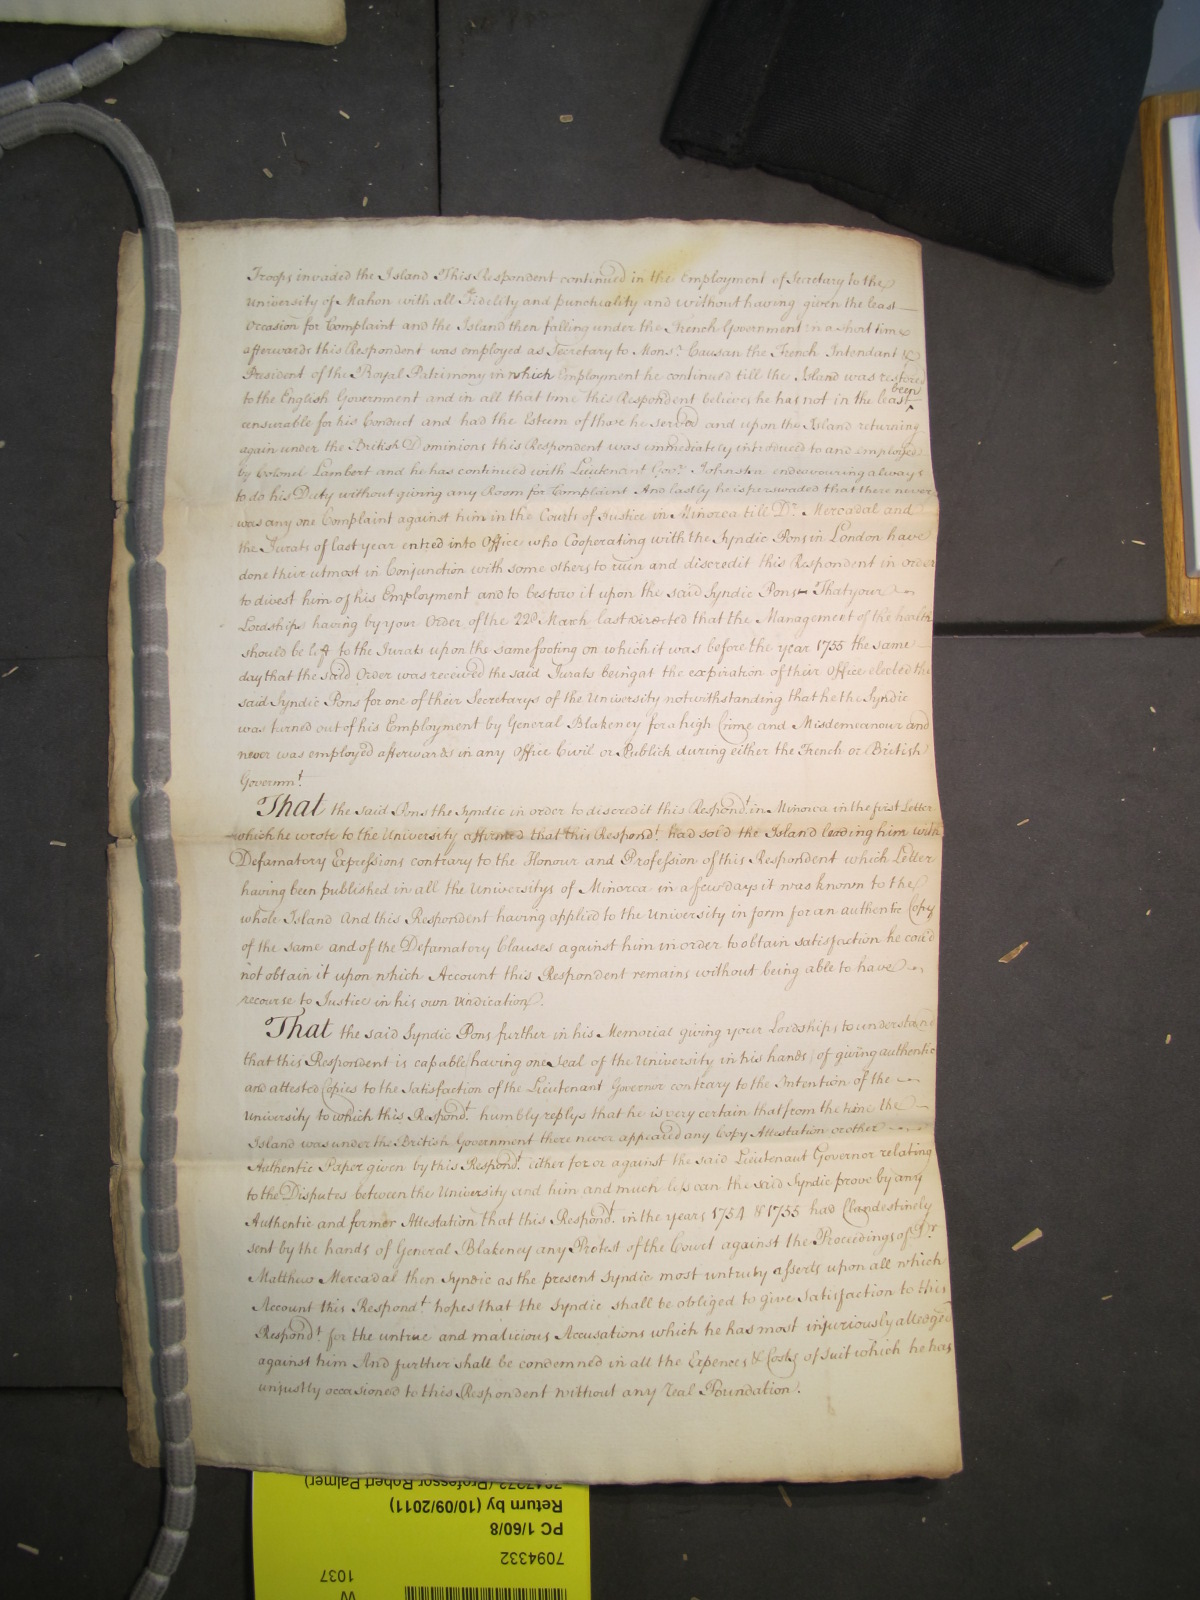 Troops invaded the Island This Respondent continued in the Employment of Secretary to the
University of Mahon with all Fidelity and punctuality and without having given the least
Occasion for Complaint and the Island then falling under the French Government in a short time
afterwards this Respondent was employed as Secretary to Monsr. Causan the French Intendant &
President of the Royal Patrimony in which Employment he continued till the Island was restored
to the English Government and in all that time this Respondent believes he has not in the least been
censurable for his Conduct and had the Esteem of those he served and upon the Island returning
again under the British Dominions this Respondent was immediately introduced to and employed
by Colonel Lambert and he has continued with Lieutenant Govr. Johnston endeavouring always
to do his Duty without giving any Room for Complaint And lastly he is perswaded that there never
was any one Complaint against him in the Courts of Justice in Minorca till Dr. Mercadal and
the Jurats of last year entred into Office who Cooperating with the Syndic Pons in London have
done their utmost in Conjunction with some others to ruin and discredit this Respondent in order
to divest him of his Employment and to bestow it upon the said Syndic Pons That your
Lordships having by your Order of the 22d March last directed that the Management of the health
should be left to the Jurats upon the same footing on which it was before the year 1755 the same
day that the said Order was received the said Jurats being at the expiration of their Office elected the
said Syndic Pons for one of their Secretarys of the University notwithstanding that he the Syndic
was turned out of his Employment by General Blakeney for a high Crime and Misdemeanour and
never was employed afterwards in any Office Civil or Publick during either the French or British
Governmt.
That the said Pons the Syndic in order to discredit this Respondt. in Minorca in the first Letter
which he wrote to the University affirmed that this Respondt. had sold the Island loading him with
Defamatory Expressions contrary to the Honour and Profession of this Respondent which Letter
having been published in all the Universitys of Minorca in a few days it was known to the
whole Island And this Respondent having applied to the University in form for an authentic Copy
of the same and of the Defamatory Clauses against him in order to obtain satisfaction he cou'd
not obtain it upon which Account this Respondent remains without being able to have
recourse to Justice in his own Vindication.
That the said Syndic Pons further in his Memorial giving your Lordships to understand
that this Respondent is capable (having one Seal of the University in his hands) of giving authentic
and attested Copies to the Satisfaction of the Lieutenant Governor contrary to the Intention of the
University to which this Respondt. humbly replys that he is very certain that from the time the
Island was under the British Government there never appeared any Copy Attestation or other
Authentic Paper given by this Respondt. either for or against the said Lieutenant Governor relating
to the Disputes between the University and him and much less can the said Syndic prove by any
Authentic and former Attestation that this Respondt. in the years 1754 & 1755 had Clandestinely
sent by the hands of General Blakeney any Protest of the Court against the Proceedings of Dr.
Matthew Mercadal then Syndic as the present Syndic most untruly asserts upon all which
Account this Respondt. hopes that the Syndic shall be obliged to give satisfaction to this
Respondt. for the untrue and malicious Accusations which he has most injuriously alledged
against him And further shall be condemned in all the Expences & Costs of Suit which he has
unjustly occasioned to this Respondent without any Real Foundation.
7047373 (Professor Robert Palmer)
Return by (10/09/2011)
PC 1/60/8
7094332
1037
W